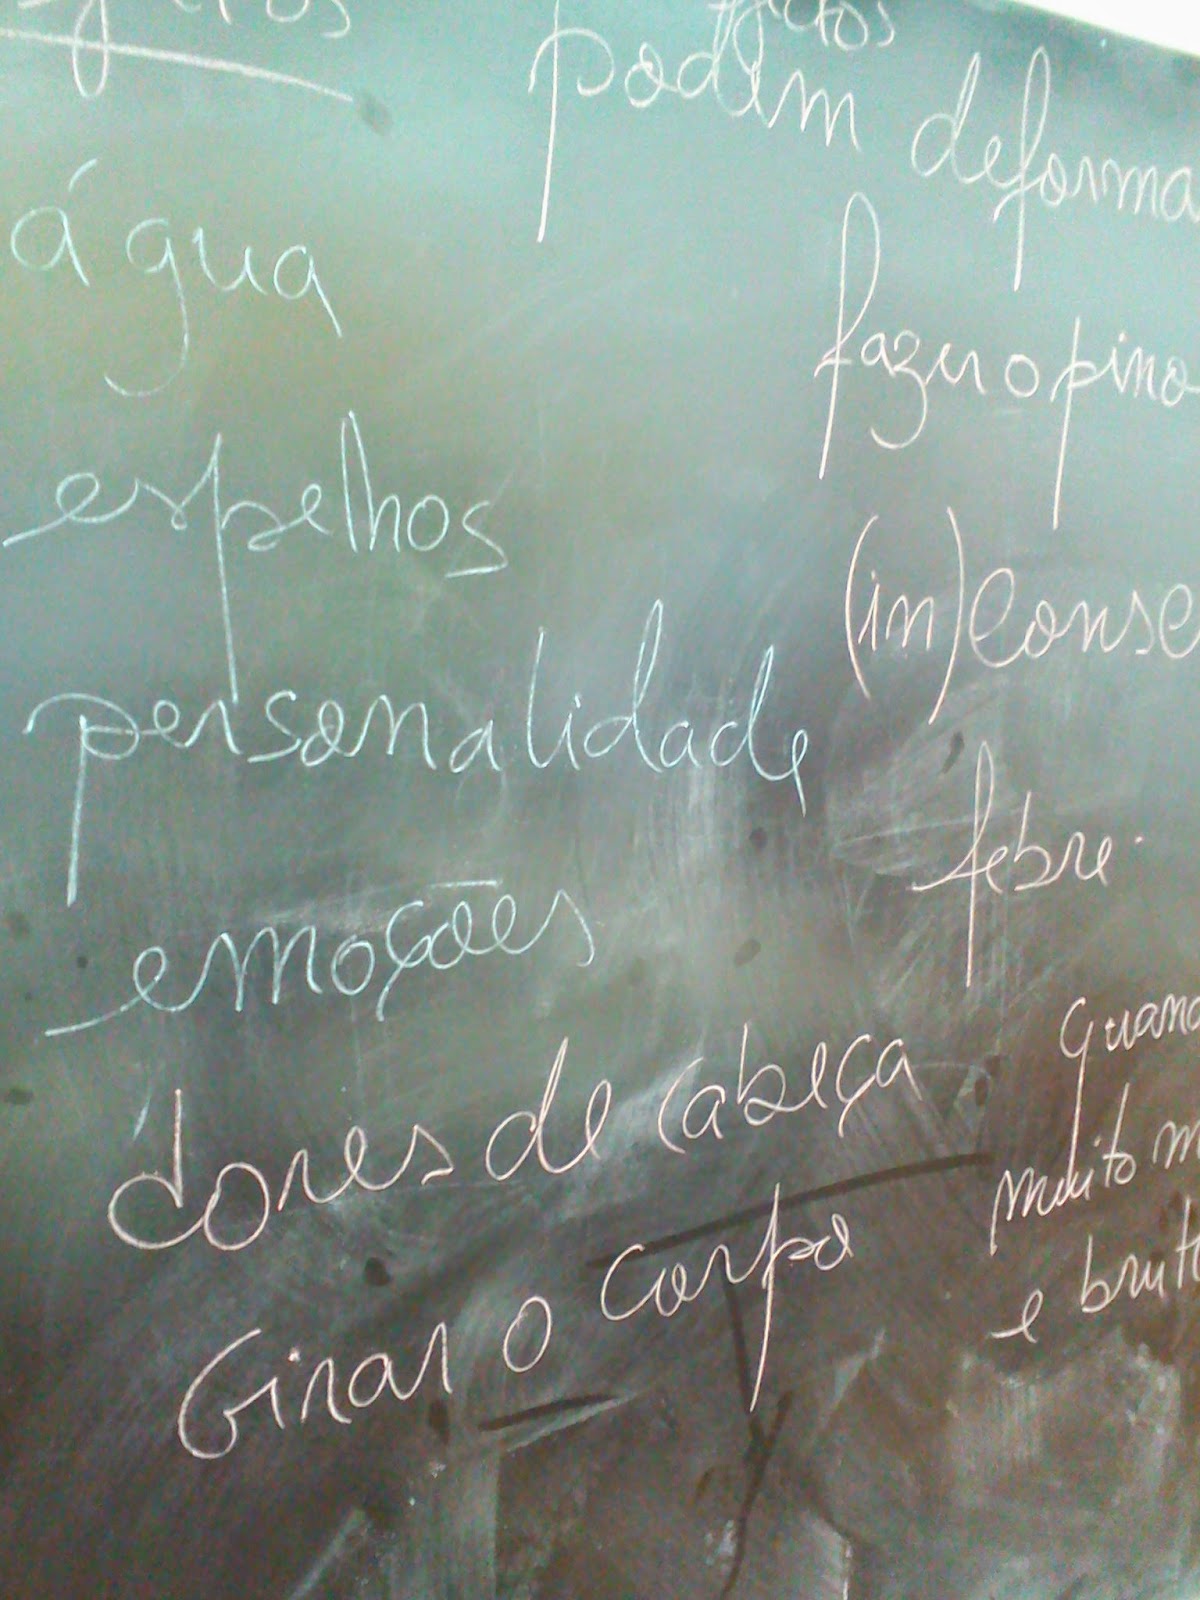 podem deforma
água
fazer o pino
espelhos
(in)conse
personalidade
febre.
emoções
dores de cabeça
quand
muito m
Girar o corpo
e brut